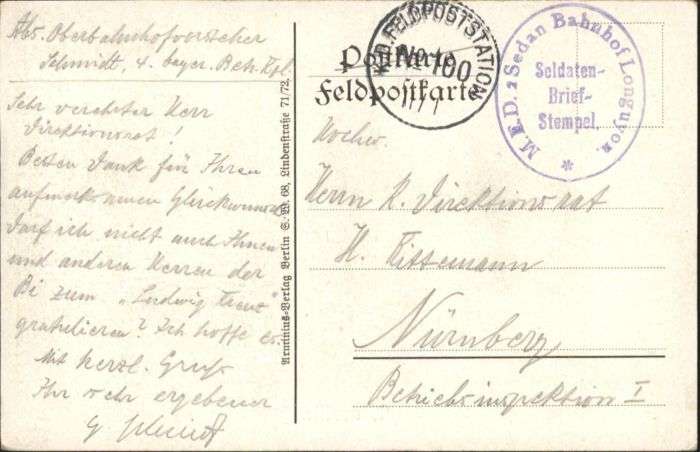 Abs. Oberbahnhofvorsteher
Schmidt, 4. bayer. Betr. Kp.
Sehr verehrter Herr
Direktionsrat!
Besten Dank für Ihren
aufmerksamen Glückwunsch
Darf ich nicht auch Ihnen
und anderen Herren der
Bi zum „Ludwig Kreuz"
gratulieren? Ich hoffe es.
Mit herzl. Gruß
Ihr sehr ergebener
G. Schmidt
Arminius-Verlag Berlin S. W. 68, Lindenstraße 71/72.
Postkarte
Feldpostkarte
K.D. FELDPOSTSTATION
No 100
M.E.D. 2 Sedan Bahnhof Longuyon.
Soldaten-
Brief-
Stempel.
Hochw.
Herrn K. Direktionsrat
H.
Nürnberg
Betriebsinspektion I